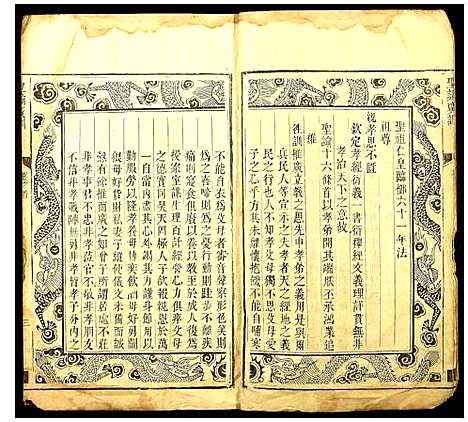 聖祖仁皇帝臨御六十一年法
祖尊
親孝思不匱
欽定孝經衍義一書衍釋經文義理詳貫無非
孝治天下之意故
聖諭十六條首以孝弟開其端朕丕承鴻業追
維
往訓推廣立教之思先申孝弟之義用是與爾
兵民人等宣示之夫孝者天之經地之義
民之行也人不知孝父母獨不思父母愛
子之心乎方其未離懷抱饑不能自哺寒
不能自衣為父母者審音聲察形色笑則
為之喜啼則為之憂行動則跬步不離疾
痛則寢食俱廢以養以教至於成人復為
授家室謀生理百計經營心力俱瘁父母
之德實同昊天罔極人子欲報親恩於萬
一自當內盡其心外竭其力謹身節用以
勤服勞以隆孝養毋博奕飲酒毋好勇鬬
狠毋好貨財私妻子縱使儀文未備而誠
慤有餘推而廣之如曾子所謂居處不莊
非孝事君不忠非孝涖官不敬非孝朋友
不信非孝戰陣無勇非孝皆孝子分內之